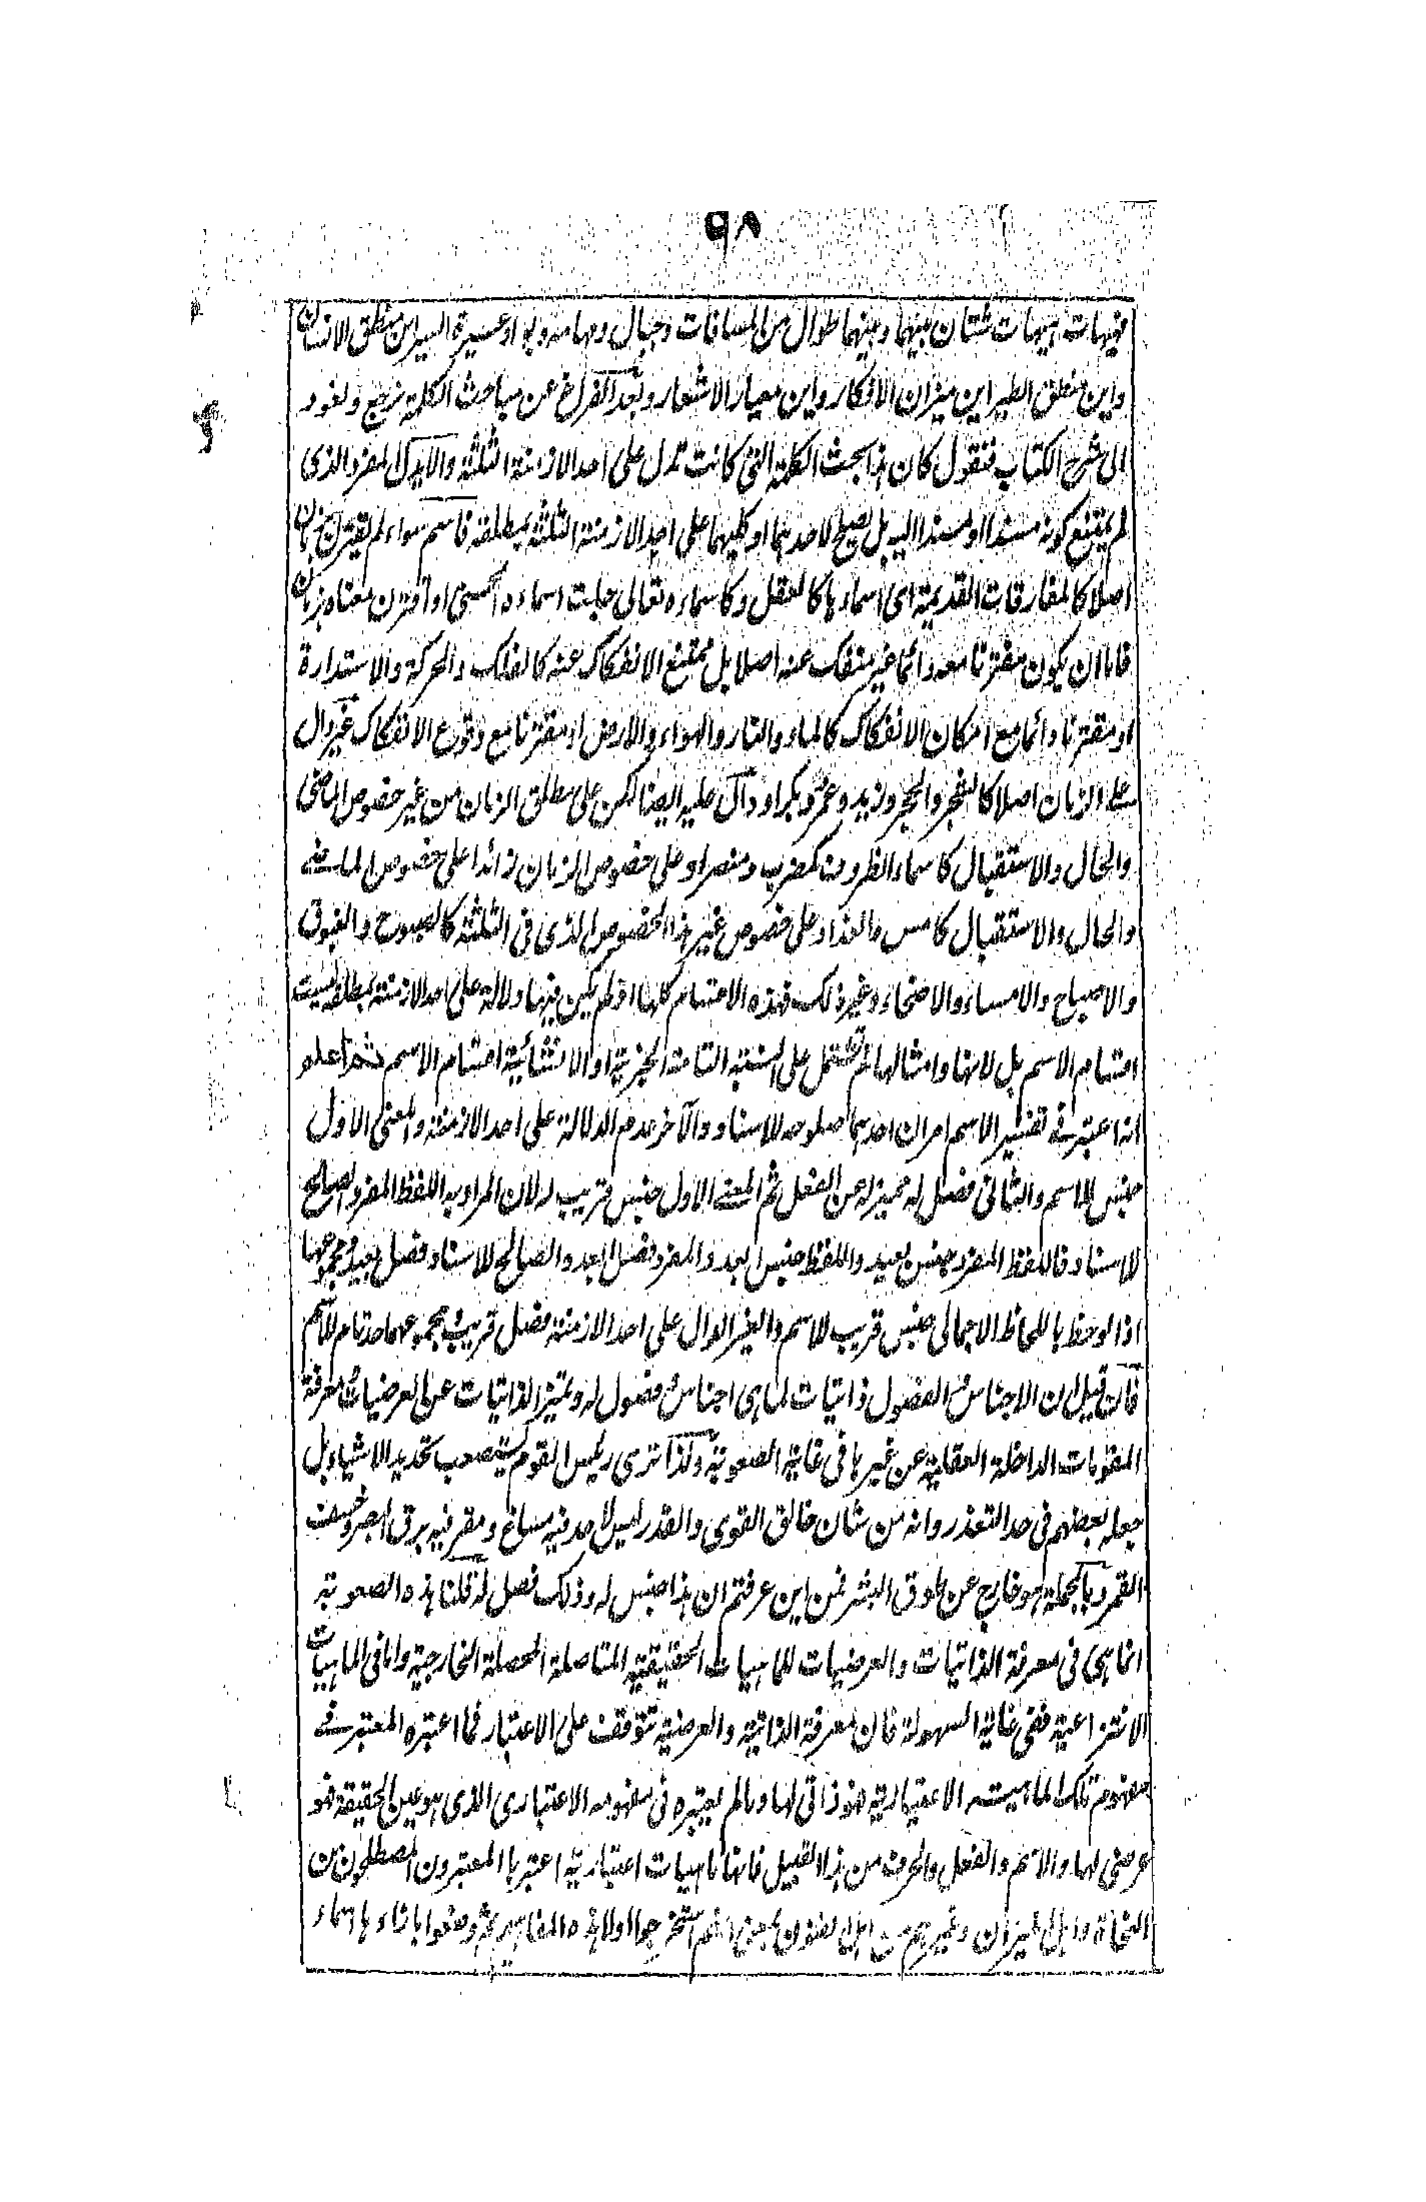 ٩٨
فهيهات هيهات شتان بينهما وبينهما طوال من المسافات وجبال ومهامه وبواد عسيرة السير اين منطق الانسان
واين منطق الطير اين ميزان الافكار واين معيار الاشعار وبعد الفراغ عن مباحث الكلمة نرجع ونعود
الى شرح الكتاب فنقول كان هذا بحث الكلمة التى كانت تدل على احد الازمنة الثلثة والا اى المفرد الذى
لم يمتنع كونه مسندا او مسندا اليه بل يصلح لاحدهما او كليهما على احد الازمنة الثلثة بمطلقه فاسم سواء لم يقترن بزمان
اصلا كالمفارقات القديمة اى اسماءها كالعقل وكاسماءه تعالى جلت اسماءه الحسنى او اقترن معناه بزمان
فاما ان يكون مقترنا معه دائما غير منفك عنه اصلا بل ممتنع الانفكاك عنه كالفلك والحركة والاستدارة
او مقترنا دائما مع امكان الانفكاك كالماء والنار والهواء والارض او مقترنا مع وقوع الانفكاك غير دال
على الزمان اصلا كالشجر والحجر وزيد وعمرو بكر او دال عليه ايضا لكن على مطلق الزمان من غير خصوص الماضى
والحال والاستقبال كاسماء الظروف كمضرب ومنصر او على خصوص الزمان زائدا على خصوص الماضى
والحال والاستقبال كامس والغد او على خصوص غير هذا الخصوص الذى فى الثلثة كالصبوح والغبوق
والاصباح والامساء والاضحاء وغير ذلك فهذه الاقسام كلها اذ لم يكن فيها دلالة على احد الازمنة بمطلقه ليست
اقسام الاسم بل لانها وامثالها لم تشتمل على النسبة التامة الخبرية او الانشائية اقسام الاسم ثم اعلم
انه اعتبر فى تفسير الاسم امران احدهما صلوحه للاسناد والآخر عدم الدلالة على احد الازمنة والمعنى الاول
جنس للاسم والثانى فصل له مميز له عن الفعل ثم المعنى الاول جنس قريب له لان المراد به اللفظ المفرد الصالح
للاسناد فاللفظ المفرد جنس بعيد واللفظ جنس ابعد والمفرد فصل ابعد والصالح للاسناد فصل بعيد ومجموعها
اذا لوحظ باللحاظ الاجمالى جنس قريب للاسم والغير الدال على احد الازمنة فصل قريب فمجموعهما حد تام للاسم
فان قيل ان الاجناس والفصول ذاتيات لما هى اجناس وفصول له وتميز الذاتيات عن العرضيات ومعرفة
المقومات الداخلة العقلية عن غيرها فى غاية الصعوبة ولذا ترى رئيس القوم يستصعب تحديد الاشياء بل
جعله بعضهم فى حد التعذر وانه من شان خالق القوى والقدر ليس لاحد فيه مساغ ومقر فيه برق البصر وخسف
القمر وبالجملة هو خارج عن طوق البشر فمن اين عرفتم ان هذا جنس له وذلك فصل له قلنا هذه الصعوبة
انما هى فى معرفة الذاتيات والعرضيات للماهيات الحقيقية المتاصلة المحصلة الخارجية واما فى الماهيات
الانتزاعية ففى غاية السهولة فان معرفة الذاتية والعرضية تتوقف على الاعتبار فما اعتبره المعتبر فى
مفهوم تلك الماهية الاعتبارية فهو ذاتى لها وما لم يعتبره فى مفهومه الاعتبارى الذى هو عين الحقيقة فهو
عرضى لها والاسم والفعل والحرف من هذا القبيل فانها ماهيات اعتبارية اعتبرها المعتبرون المصطلحون من
النحاة واهل الميزان وغيرهم من اهل الفنون بمعنى انهم استخرجوا اولا هذه المفاهيم ثم وضعوا بازاءها اسماء